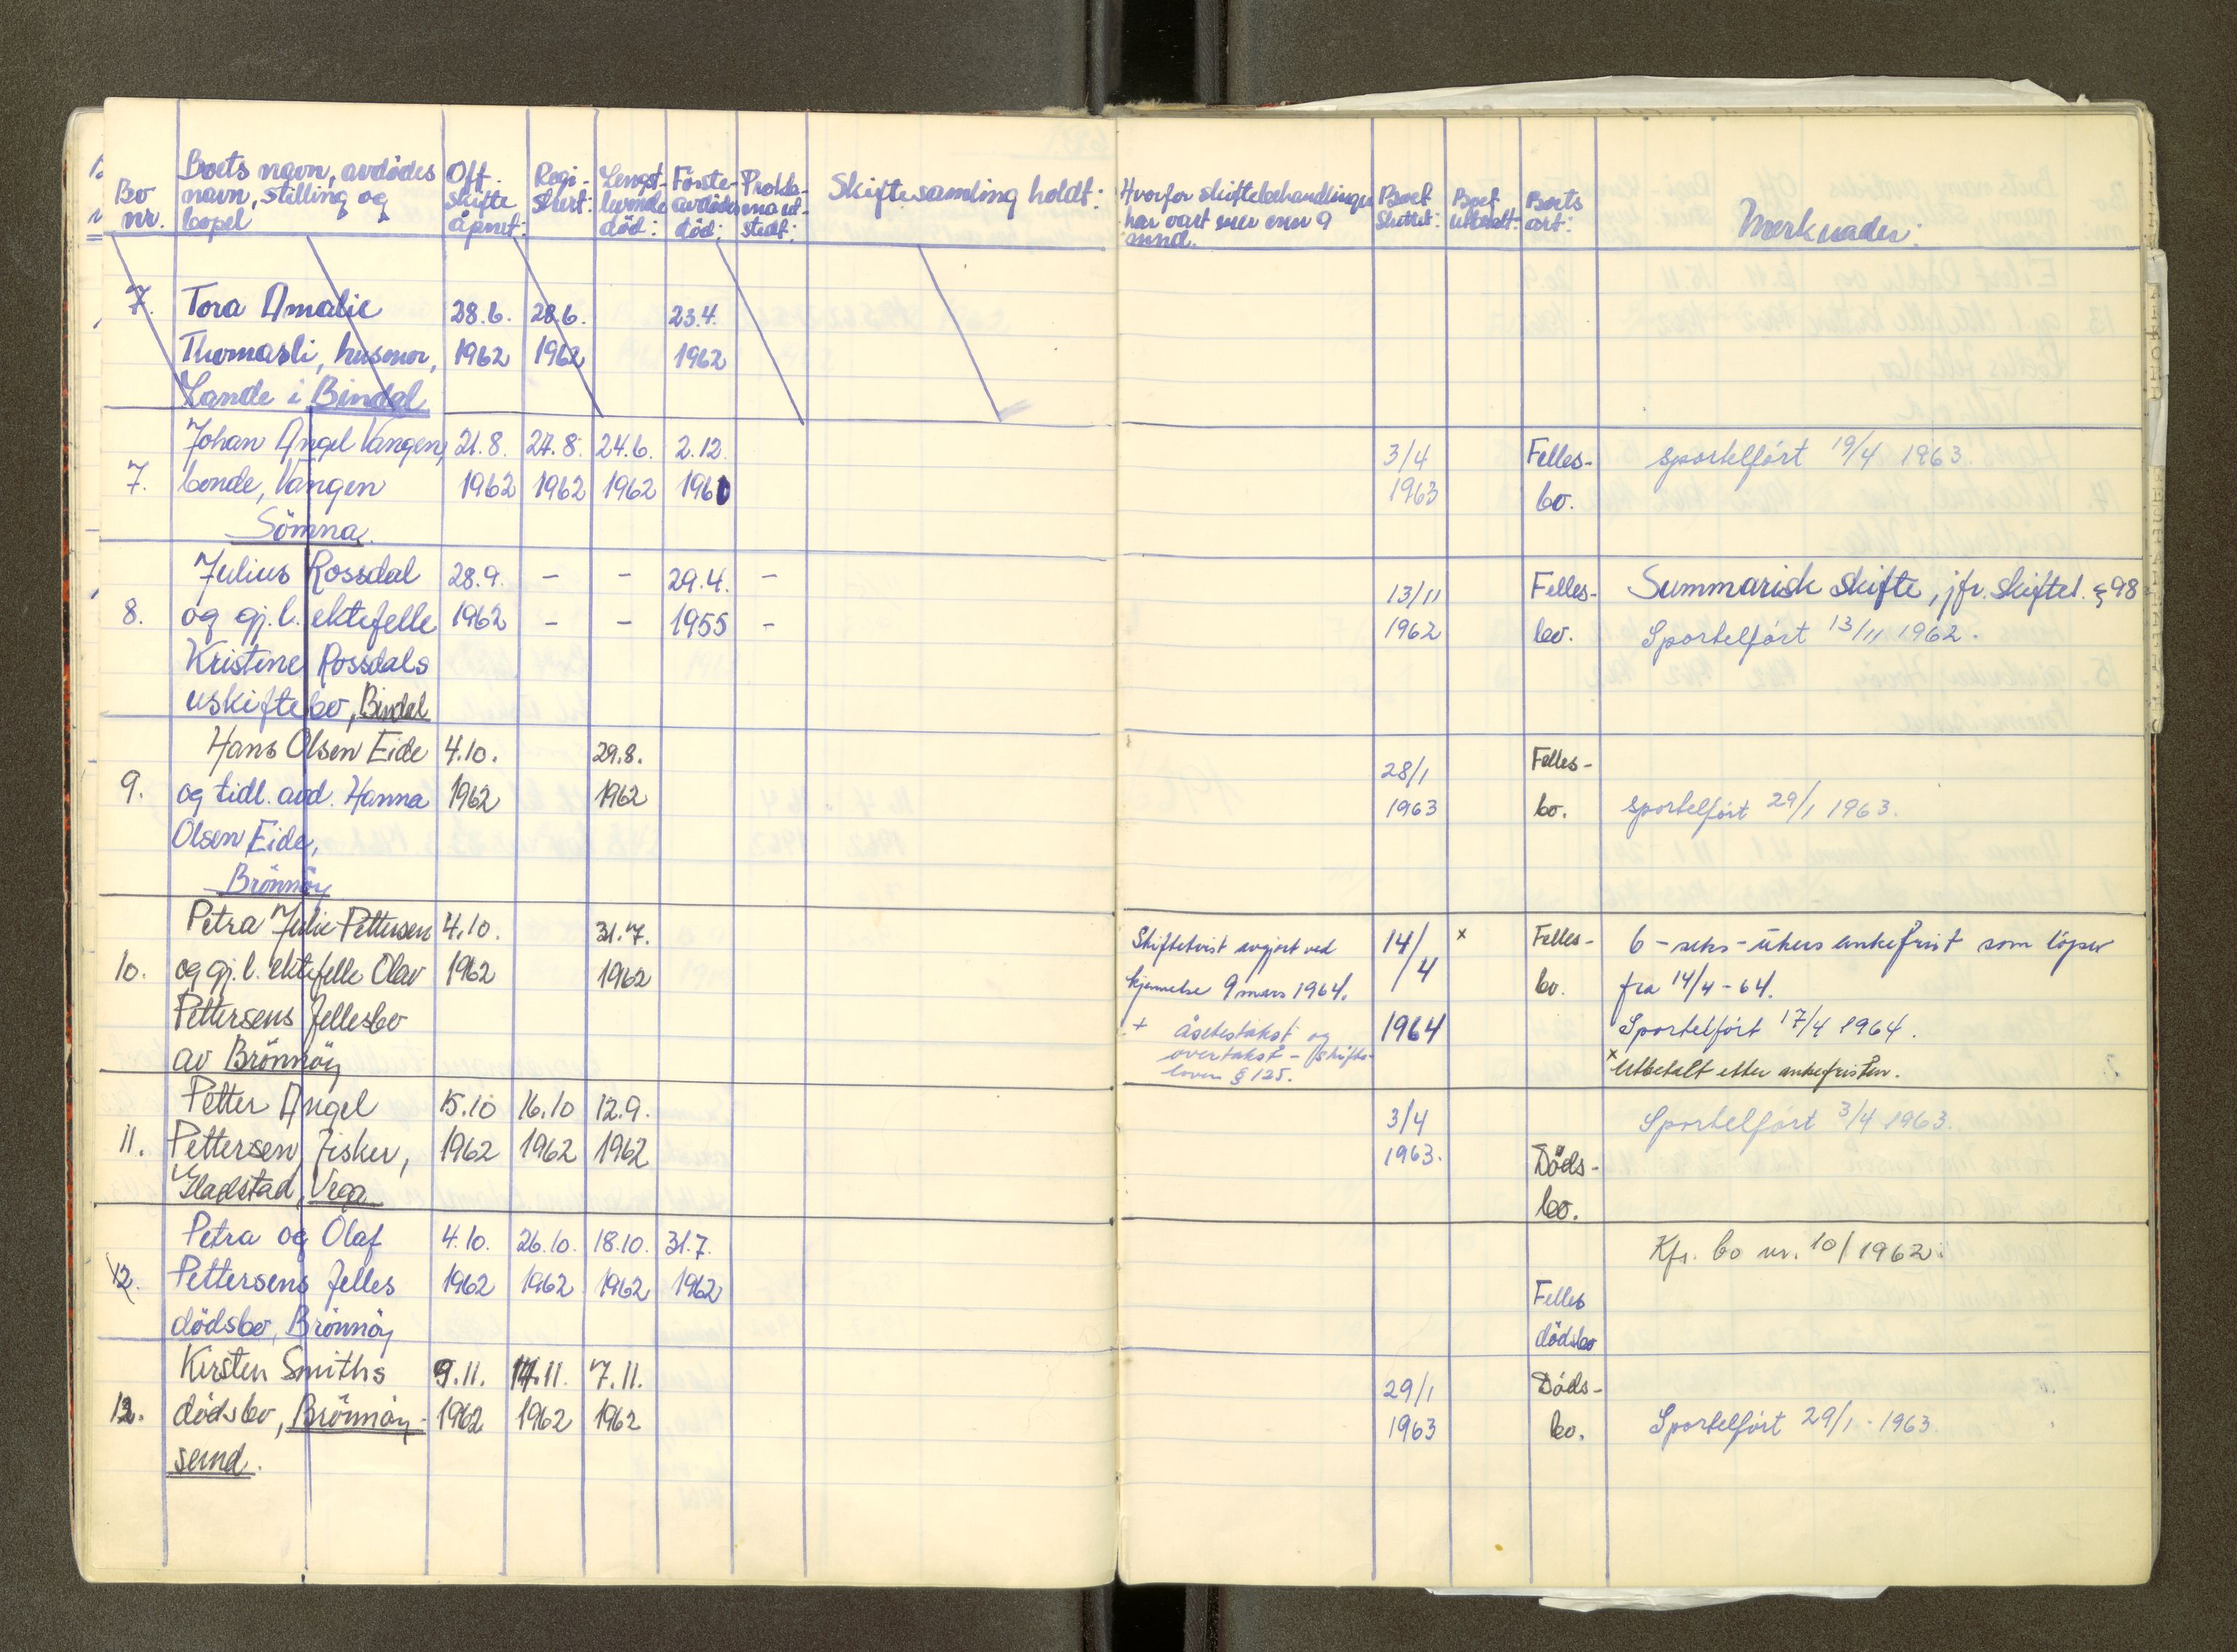 Bo nr.
Boets navn, avdödes navn, stilling og bopel
Off. skifte åpnet:
Regi-strert:
Lengst-levende död:
Förste-avdödes död:
Prokla-ma ut-stedt:
Skiftesamling holdt:
Hvorfor skiftebehandlingen har vart mer enn 9 mnd.
Boet sluttet:
Boet utbetalt:
Boets art:
Merknader:
7. Tora Amalie 28.6. 28.6. 23.4.
Thomasli, husmor, 1962 1962 1962
Lande i Bindal
Johan Angel Vangen, 21.8. 27.8. 24.6. 2.12. 3/4 Felles- sportelført 19/4 1963.
7. bonde, Vangen 1962 1962 1962 1961 1963 bo.
Sömna.
Julius Rossdal 28.9. - - 29.4. - 13/11 Felles- Summarisk skifte, jfr. skiftel. § 98
8. og gj.l. ektefelle 1962 - - 1955 - 1962 bo. Sportelført 13/11 1962.
Kristine Rossdals
uskiftebo, Bindal
Hans Olsen Eide 4.10. 29.8. 28/1 Felles-
9. og tidl. avd. Hanna 1962 1962 1963 bo. sportelført 29/1 1963.
Olsen Eide,
Brönnöy
Petra Julie Pettersen 4.10. 31.7. Skiftetvist avgjort ved 14/4 x Felles- 6 - seks - ukers ankefrist som löper
10. og gj.l. ektefelle Olav 1962 1962 kjennelse 9 mars 1964. bo. fra 14/4 - 64.
Pettersens fellesbo + åsetestakst og 1964 Sportelført 17/4 1964.
av Brönnöy overtakst - skifte-
loven § 125. x Utbetalt etter ankefristen.
Petter Angel 15.10 16.10 12.9. 3/4 Sportelført 3/4 1963.
11. Pettersen, fisker, 1962 1962 1962 1963. Döds-
Gladstad, Vega bo.
Petra og Olaf 4.10. 26.10. 18.10. 31.7. Kfr. bo nr. 10/1962.
12. Pettersens felles 1962 1962 1962 1962 Felles
dödsbo, Brönnöy dödsbo
Kirsten Smiths 9.11. 14.11. 7.11. 29/1 Döds-
12. dödsbo, Brönnöy- 1962 1962 1962 1963 bo. Sportelført 29/1 - 1963.
sund.